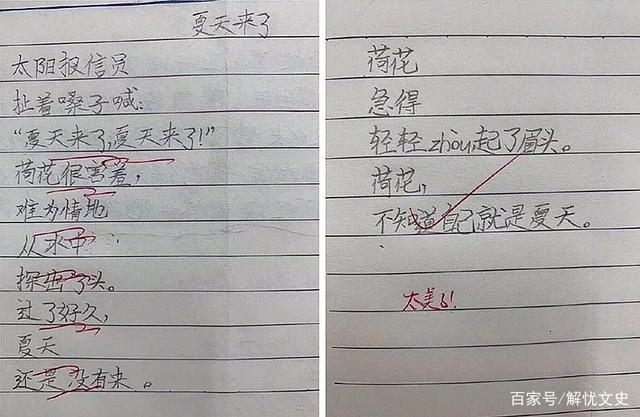 夏天来了
太阳报信员
扯着嗓子喊：
“夏天来了，夏天来了！”
荷花很害羞，
难为情地
从水中
探出了头。
过了好久，
夏天
还是没有来。
荷花
急得
轻轻zhou起了眉头。
荷花，
不知道自己就是夏天。
太美了！
百家号/解忧文史